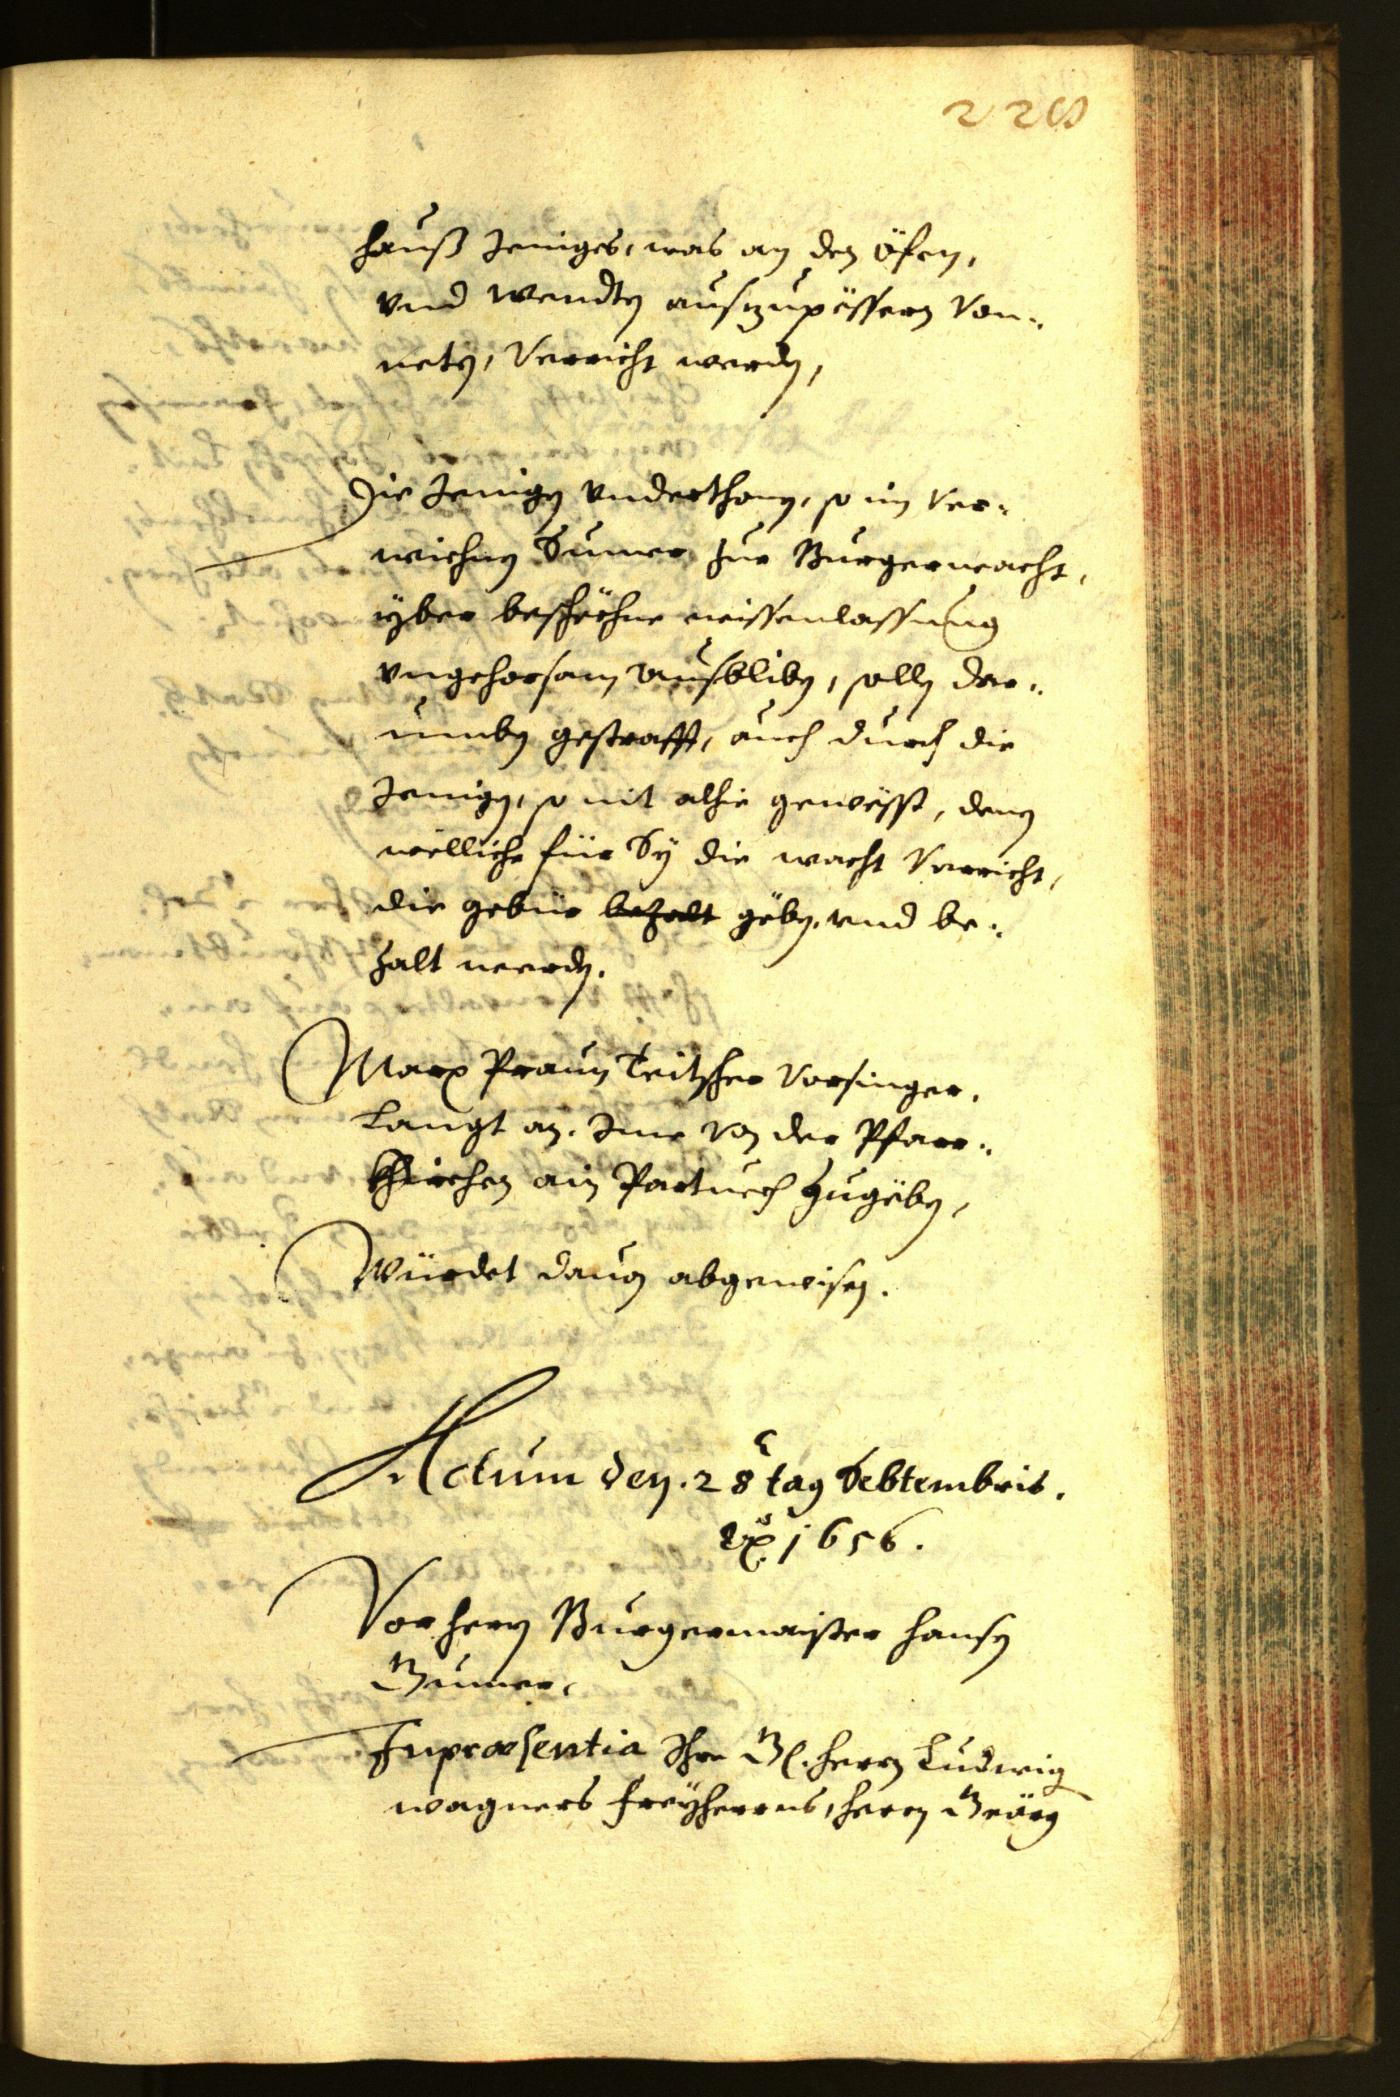 228
hauß Jeniges, was an den öfen,
vnd wendten auszupëssern von¬
neten, Verricht werden,
Die Jenigen vnderthonen, so im ver¬
wichnen Sumer zur Burgerwacht,
yber beschechne wissenlassung
vngehorsam ausbliben, sollen dar¬
umben gestrafft, auch durch die
Jenigen, so nit alhie gewësst, denen
wëlliche für Sÿ die wacht Verricht,
die gebür bezalt gëben, vnd be¬
zalt werden.
Marx Praun Teitscher Vorsinger,
Langt an, Ime von der Pfarr¬
Khirchen ain Partuech zugëben,
Würdet dauon abgewisen.
Actum den. 28 tag Sebtembris.
1656.
Vor herrn Burgermaister hansen
Gumer,
In præsentia Ihr G. herrn Ludwig
wagners freÿherrns, herrn Geörg